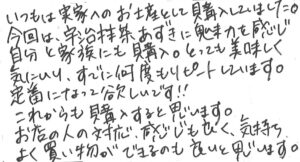 いつもは実家へのお土産として購入していました。
今回は、宇治抹茶あずきに魅力を感じ
自分と家族にも購入。とっても美味しく
気にいり、すでに何度もリピートしています。
定番になって欲しいです!!
これからも購入すると思います。
お店の人の対応、感じも良く、気持ち
よく買い物ができるのも良いと思います。